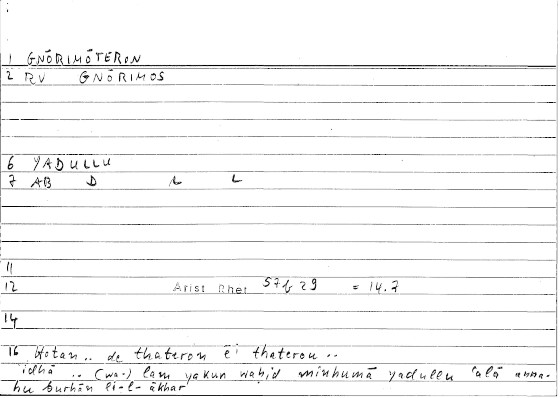 1 GNŌRIMŌTERON
2 RV GNŌRIMOS
6 YADULLU
7 AB D L L
11
12 Arist Rhet 57b29 = 14.7
14
16 Hotan .. de thateron ēi thaterou ..
idhā .. (wa-) lam yakun wahid minhumā yadullu ʿalā anna-
hu burhān li-l-ākhar